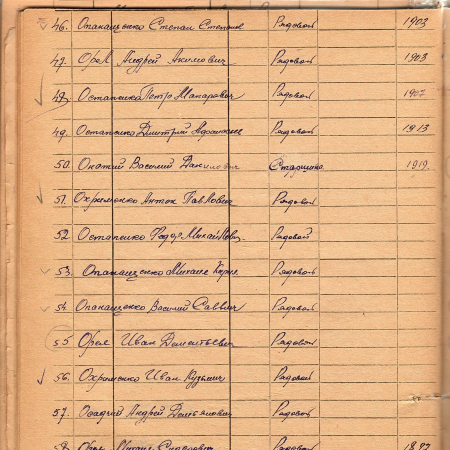 46. Опанащенко Степан Степанов Рядовой 1903
47. Орел Андрей Акимович Рядовой 1903
48. Остапенко Петр Макарович Рядовой 1907
49. Остапенко Дмитрий Рядовой 1913
50. Василий Данилович Старшина 1919.
51. Охрименко Антон Павлович Рядовой
52 Остапенко Федор Михайлович Рядовой
53. Опанащенко Михаил Рядовой
54. Опанащенко Василий Саввич Рядовой
55 Орел Иван Дементьевич Рядовой
56. Охрименко Иван Кузьмич Рядовой
57. Осадчий Андрей Демьянович Рядовой
58. Орел Михаил Рядовой